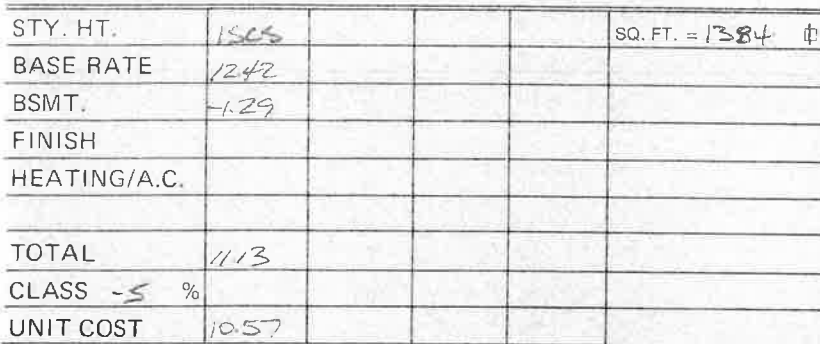 STY. HT. 1SCS SQ. FT. = 1384 ⏀
BASE RATE 1242
BSMT. -1.29
FINISH
HEATING/A.C.
TOTAL 11.13
CLASS -5 %
UNIT COST 10.57